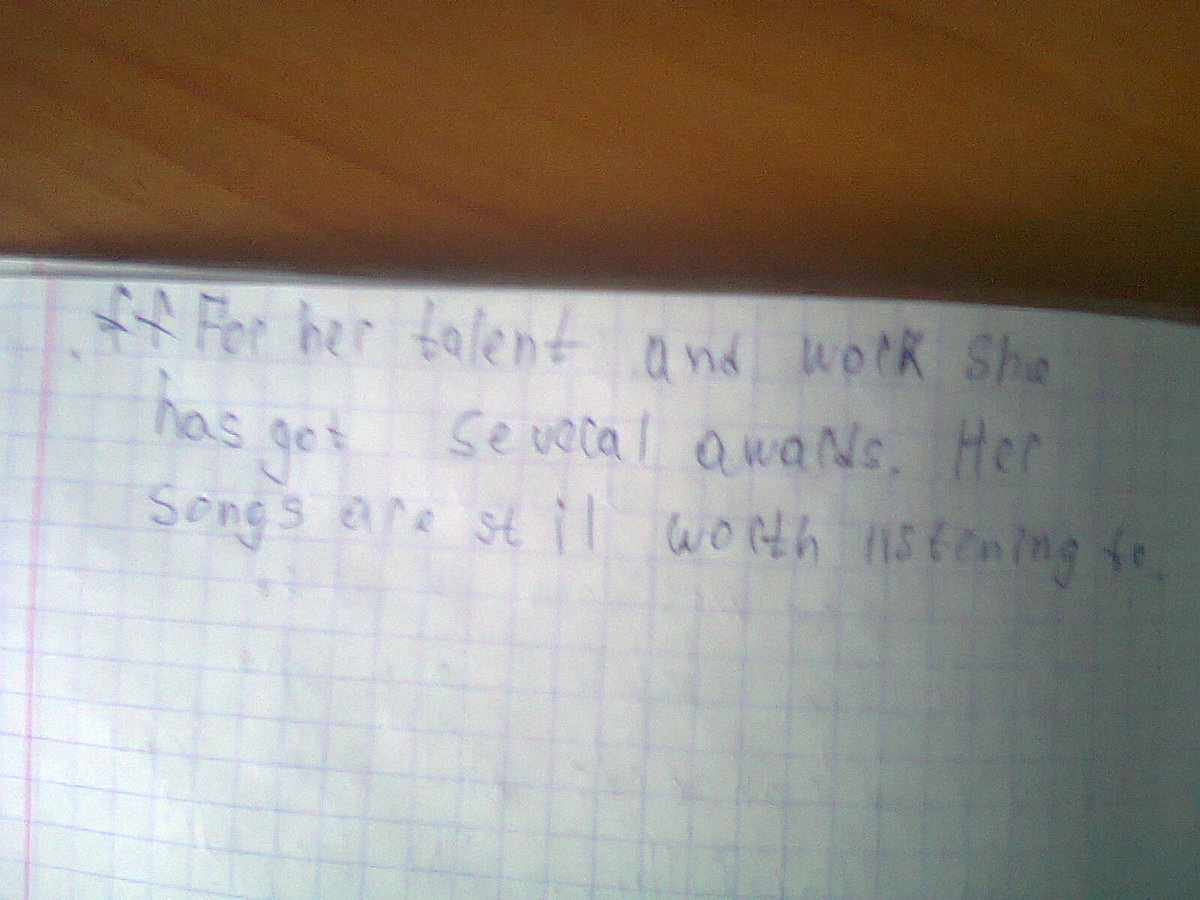 For her talent and work she
has got several awards. Her
songs are stil worth listening to.